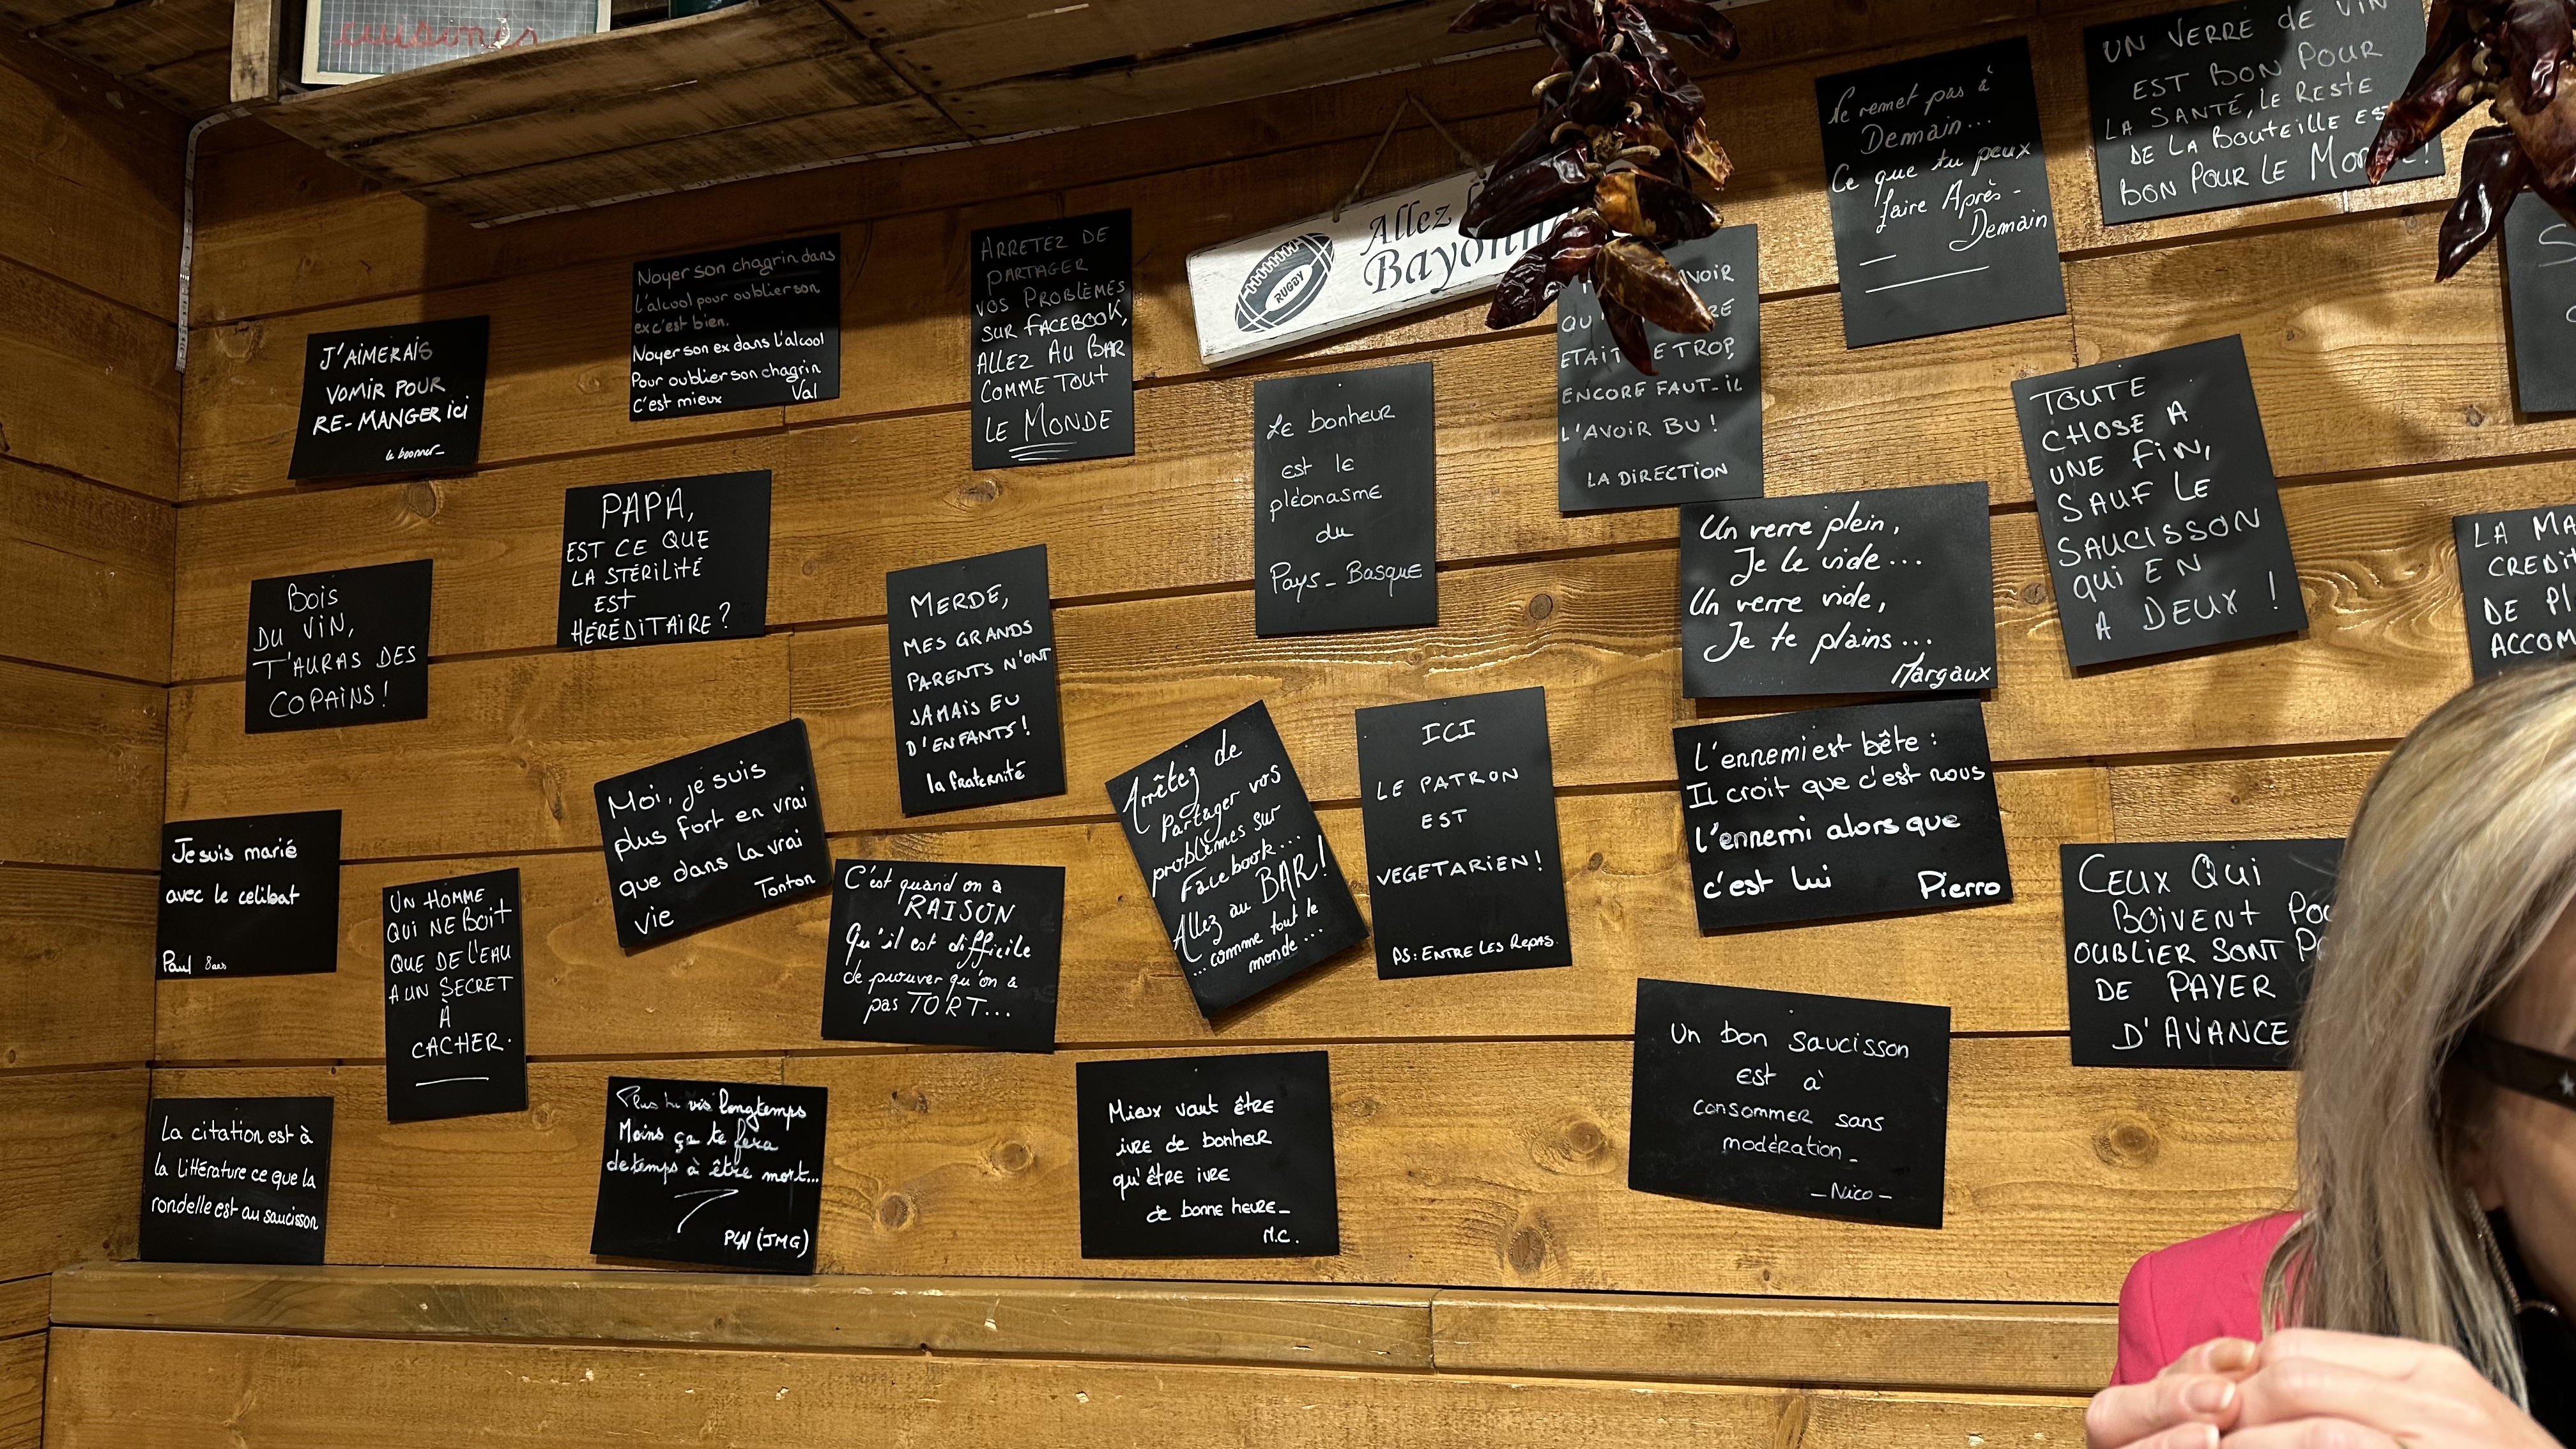 cuisinés
J'AIMERAIS
VOMIR POUR
RE-MANGER ICI
Noyer son chagrin dans
l'alcool pour oublier son
ex c'est bien.
Noyer son ex dans l'alcool
Pour oublier son chagrin
C'est mieux Val
ARRETEZ DE
PARTAGER
VOS PROBLÈMES
SUR FACEBOOK,
ALLEZ AU BAR
COMME TOUT
LE MONDE
Allez
RUGBY
AVOIR
ETAIT E TROP,
ENCORE FAUT-IL
L'AVOIR BU !
LA DIRECTION
Ne remet pas à
Demain...
Ce que tu peux
faire Après-
Demain
UN VERRE DE VIN
EST BON POUR
LA SANTÉ, LE RESTE
DE LA BOUTEILLE
BON POUR LE
PAPA,
EST CE QUE
LA STÉRILITÉ
EST
HÉRÉDITAIRE ?
Le bonheur
est le
pléonasme
du
Pays-Basque
TOUTE
CHOSE A
UNE FIN,
SAUF LE
SAUCISSON
QUI EN
A DEUX !
BOIS
DU VIN,
T'AURAS DES
COPAINS !
MERDE,
MES GRANDS
PARENTS N'ONT
JAMAIS EU
D'ENFANTS !
la fraternité
Un verre plein,
Je le vide...
Un verre vide,
Je te plains...
Margaux
LA
DE
Moi, je suis
plus fort en vrai
que dans la vrai
vie Tonton
Arrêtez de
Partager vos
problèmes sur
Facebook...
Allez au BAR !
... comme tout le
monde...
ICI
LE PATRON
EST
VEGETARIEN !
PS : ENTRE LES REPAS.
L'ennemi est bête :
Il croit que c'est nous
l'ennemi alors que
c'est lui Pierro
Je suis marié
avec le celibat
Paul 8 ans
UN HOMME
QUI NE BOIT
QUE DE L'EAU
A UN SECRET
À
CACHER.
C'est quand on a
RAISON
Qu'il est difficile
de prouver qu'on a
pas TORT...
CEUX QUI
BOIVENT
OUBLIER SONT
DE PAYER
D'AVANCE
La citation est à
la littérature ce que la
rondelle est au saucisson
Plus tu vis longtemps
Moins ça te fera
de temps à être mort...
(JMG)
Mieux vaut être
ivre de bonheur
qu'être ivre
de bonne heure-
N.C.
Un bon saucisson
est à
consommer sans
modération-
- Nico -